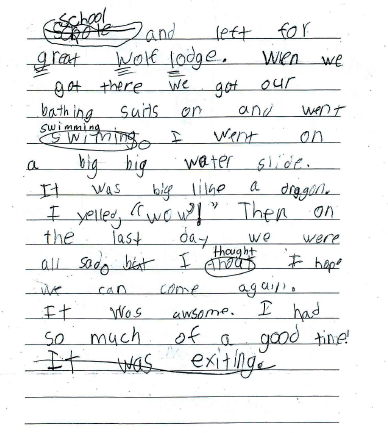 school
schole and left for
great wolf lodge. Wien we
got there we got our
bathing suits on and went
swimming
swithing. I went on
a big big water slide.
It was big like a dragon.
I yelled, "wow!" Then on
the last day we were
all sad. but I thought I hope
we can come again.
It was awsome. I had
so much of a good time!
It was exiting.